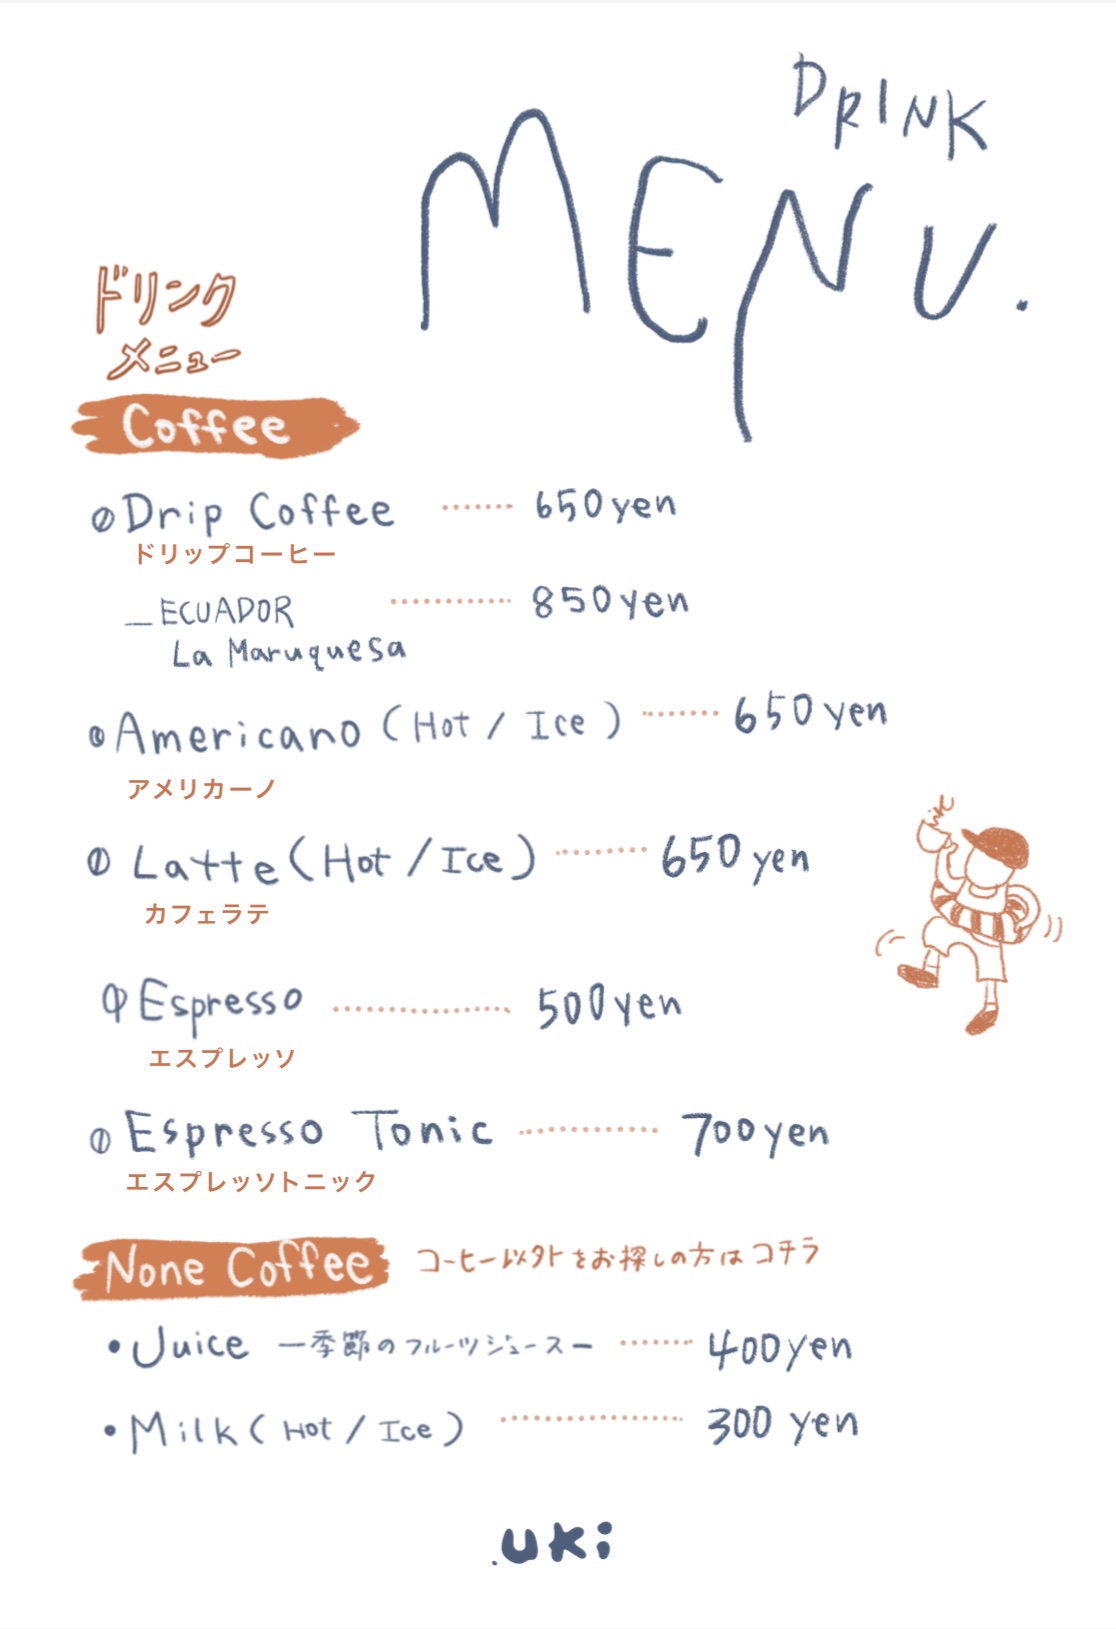 DRINK
MENU.
ドリンク
メニュー
Coffee
Drip Coffee ....... 650yen
ドリップコーヒー
_ECUADOR ............ 850yen
La Maruquesa
Americano (Hot / Ice) ........ 650yen
アメリカーノ
Latte (Hot / Ice) ......... 650yen
カフェラテ
Espresso ................. 500yen
エスプレッソ
Espresso Tonic ............. 700yen
エスプレッソトニック
None Coffee コーヒー以外をお探しの方はコチラ
・Juice ー季節のフルーツジュースー ........ 400yen
・Milk (Hot / Ice) ................. 300 yen
.uki